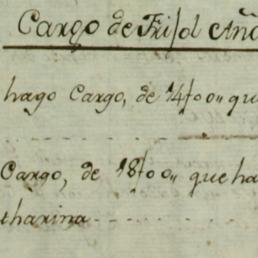 Cargo de Frisol Año
hago Cargo, de 14fo0,, qu
Cargo, de 18fo0,, que ha
tharina